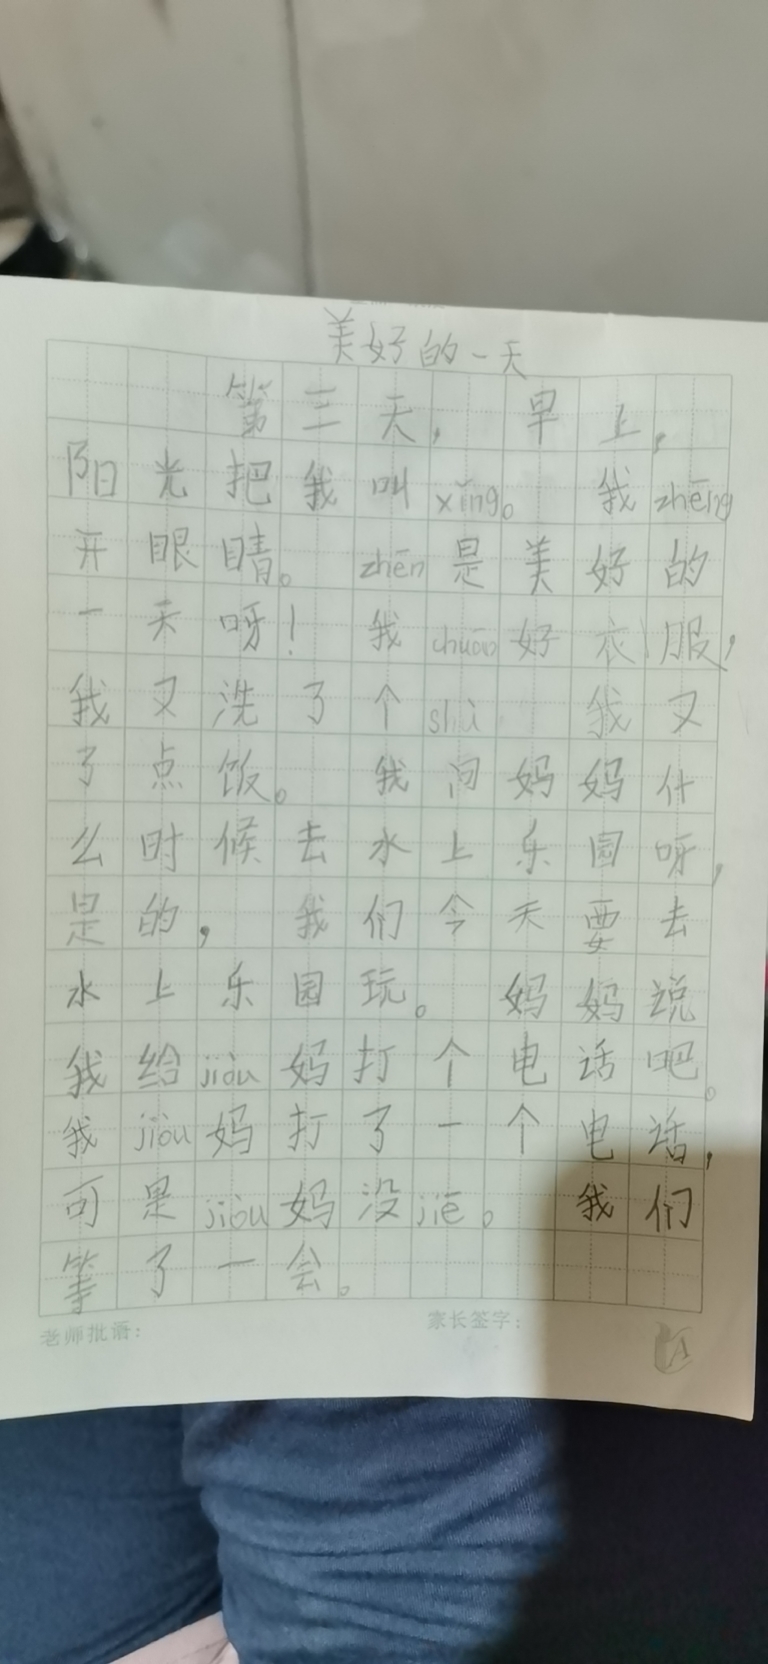 美好的一天
第三天，早上，
阳光把我叫xǐng。我zhēng
开眼睛。zhēn是美好的
一天呀！我chuān好衣服，
我又洗了个shù 我又
了点饭。我问妈妈什
么时候去水上乐园呀，
是的，我们今天要去
水上乐园玩。妈妈说
我给jiòu妈打个电话吧。
我jiòu妈打了一个电话，
可是jiòu妈没jiē。我们
等了一会。
老师批语：
家长签字：